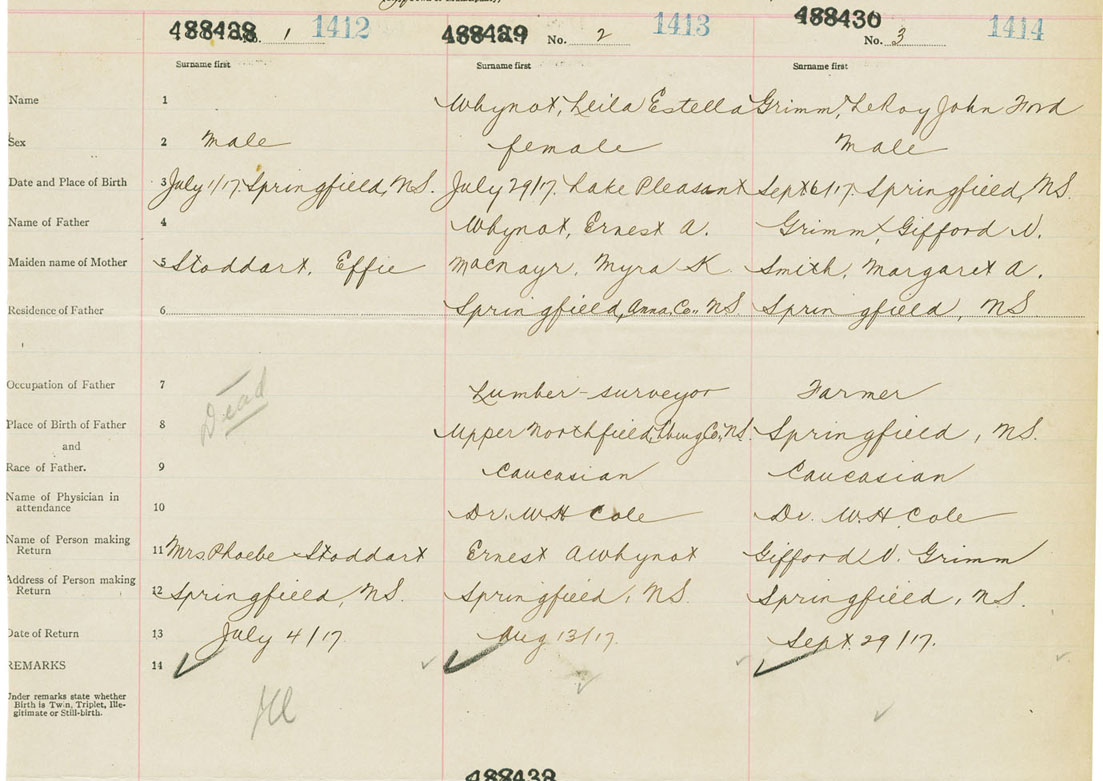 488428 No. 1 1412 488429 No. 2 1413 488430 No. 3 1414
Surname first Surname first Surname first
Name 1 Whynot, Leila Estella Grimm, LeRoy John Ford
Sex 2 Male female Male
Date and Place of Birth 3 July 1/17. Springfield, N.S. July 29/17. Lake Pleasant Sept 6/17. Springfield, N.S.
Name of Father 4 Whynot, Ernest A. Grimm, Gifford V.
Maiden name of Mother 5 Stoddart, Effie Macnayr, Myra K. Smith, Margaret A.
Residence of Father 6 Springfield, Anna. Co., N.S. Springfield, N.S.
Occupation of Father 7 Dead Lumber-surveyor Farmer
Place of Birth of Father 8 Upper Northfield, Co., N.S. Springfield, N.S.
and
Race of Father. 9 Caucasian Caucasian
Name of Physician in
attendance 10 Dr. W.H. Cole Dr. W.H. Cole
Name of Person making
Return 11 Mrs Phoebe Stoddart Ernest A Whynot Gifford V. Grimm
Address of Person making
Return 12 Springfield, N.S. Springfield, N.S. Springfield, N.S.
Date of Return 13 July 4/17. Aug 13/17. Sept. 29/17.
REMARKS 14
Under remarks state whether
Birth is Twin, Triplet, Ille-
gitimate or Still-birth.
Ill
488438